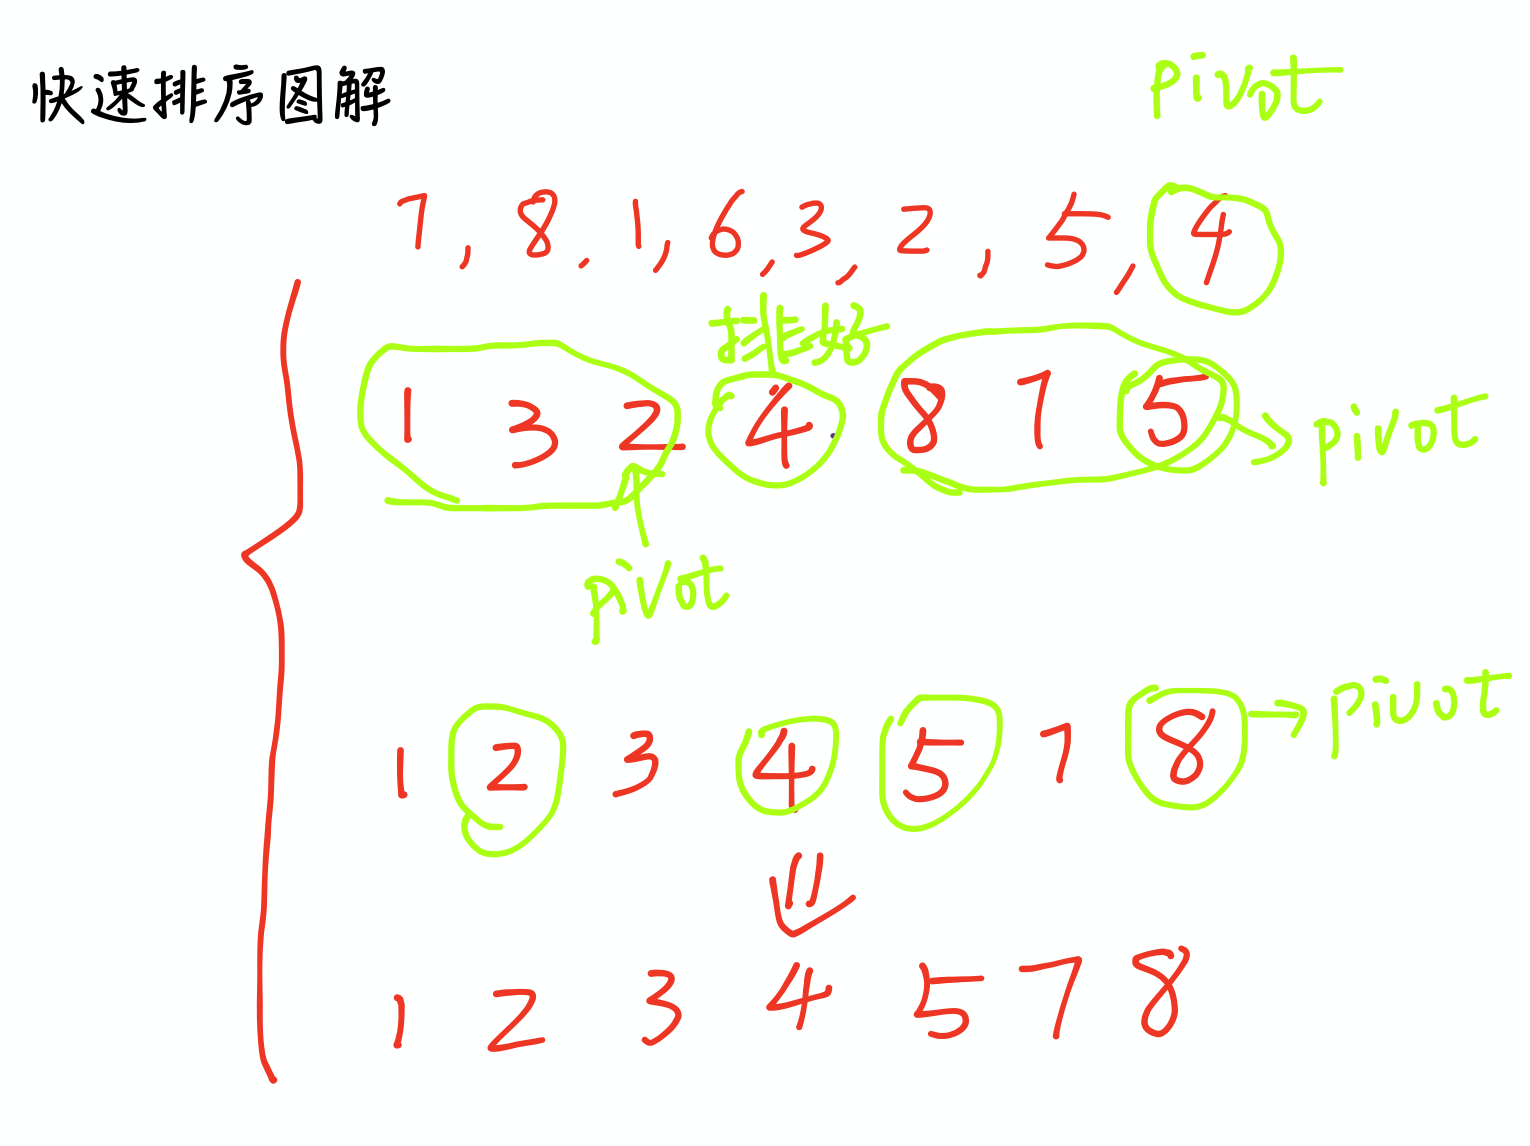 快速排序图解
pivot
7, 8, 1, 6, 3, 2, 5, 4
排好
1 3 2 4 8 7 5 → pivot
pivot
1 2 3 4 5 7 8 → pivot
1 2 3 4 5 7 8